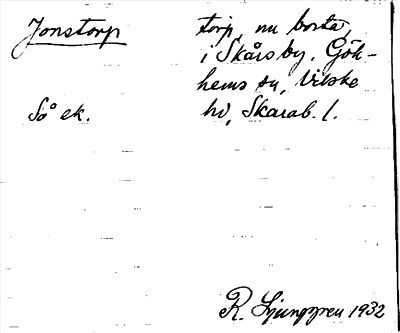 Jonstorp
torp, nu borta,
i Skårs by. Gök-
hems sn, Vilske
Så ek.
hd, Skarab. l.
R. Ljunggren 1932